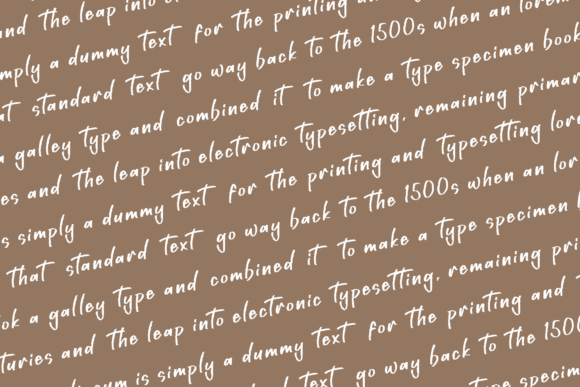 and the leap into
simply a dummy text for the printing and
that standard text go way back to the 1500s when an lorem
a galley type and combined it to make a type specimen book
and the leap into electronic typesetting, remaining primar
is simply a dummy text for the printing and typesetting lore
that standard text go way back to the 1500s when an lor
ook a galley type and combined it to make a type specimen
turies and the leap into electronic typesetting, remaining pri
is simply a dummy text for the printing and
text go way back to the 1500
type specimen